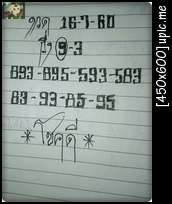 งวด 16-7-60
วิ่ง 9-3
893-895-593-583
83-93-85-95
* โชคดี *
[450x600] upic.me